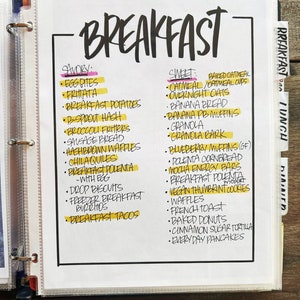 BREAKFAST
SAVORY:
• EGG BITES
• FRITTATA
• BREAKFAST POTATOES
• B-SPROUT HASH
• BROCCOLI FRITTERS
• SAUSAGE BREAD
• HASHBROWN WAFFLES
• CHILAQUILES
• BREAKFAST POLENTA
WITH EGG
• DROP BISCUITS
• FREEZER BREAKFAST
BURRITOS
• BREAKFAST TACOS
SWEET:
BAKED OATMEAL
• OATMEAL / OATMEAL CUPS
• OVERNIGHT OATS
• BANANA BREAD
• BANANA PB MUFFINS
• GRANOLA
• GRANOLA BARK
• BLUEBERRY MUFFINS (GF)
• POLENTA CORNBREAD
• MOCHA ENERGY BARS
• BREAKFAST POLENTA
• VEGAN THUMBPRINT COOKIES
• WAFFLES
• FRENCH TOAST
• BAKED DONUTS
• CINNAMON SUGAR TORTILLA
• EVERYDAY PANCAKES
BREAKFAST
LUNCH
DINNER